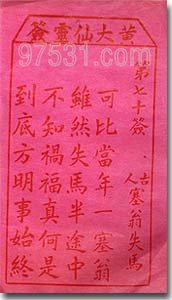 黄大仙靈簽
97531.com
第七十簽
古人
塞翁失馬
可比當年一塞翁
雖然失馬半途中
不知禍福真何是
到底方明事始終